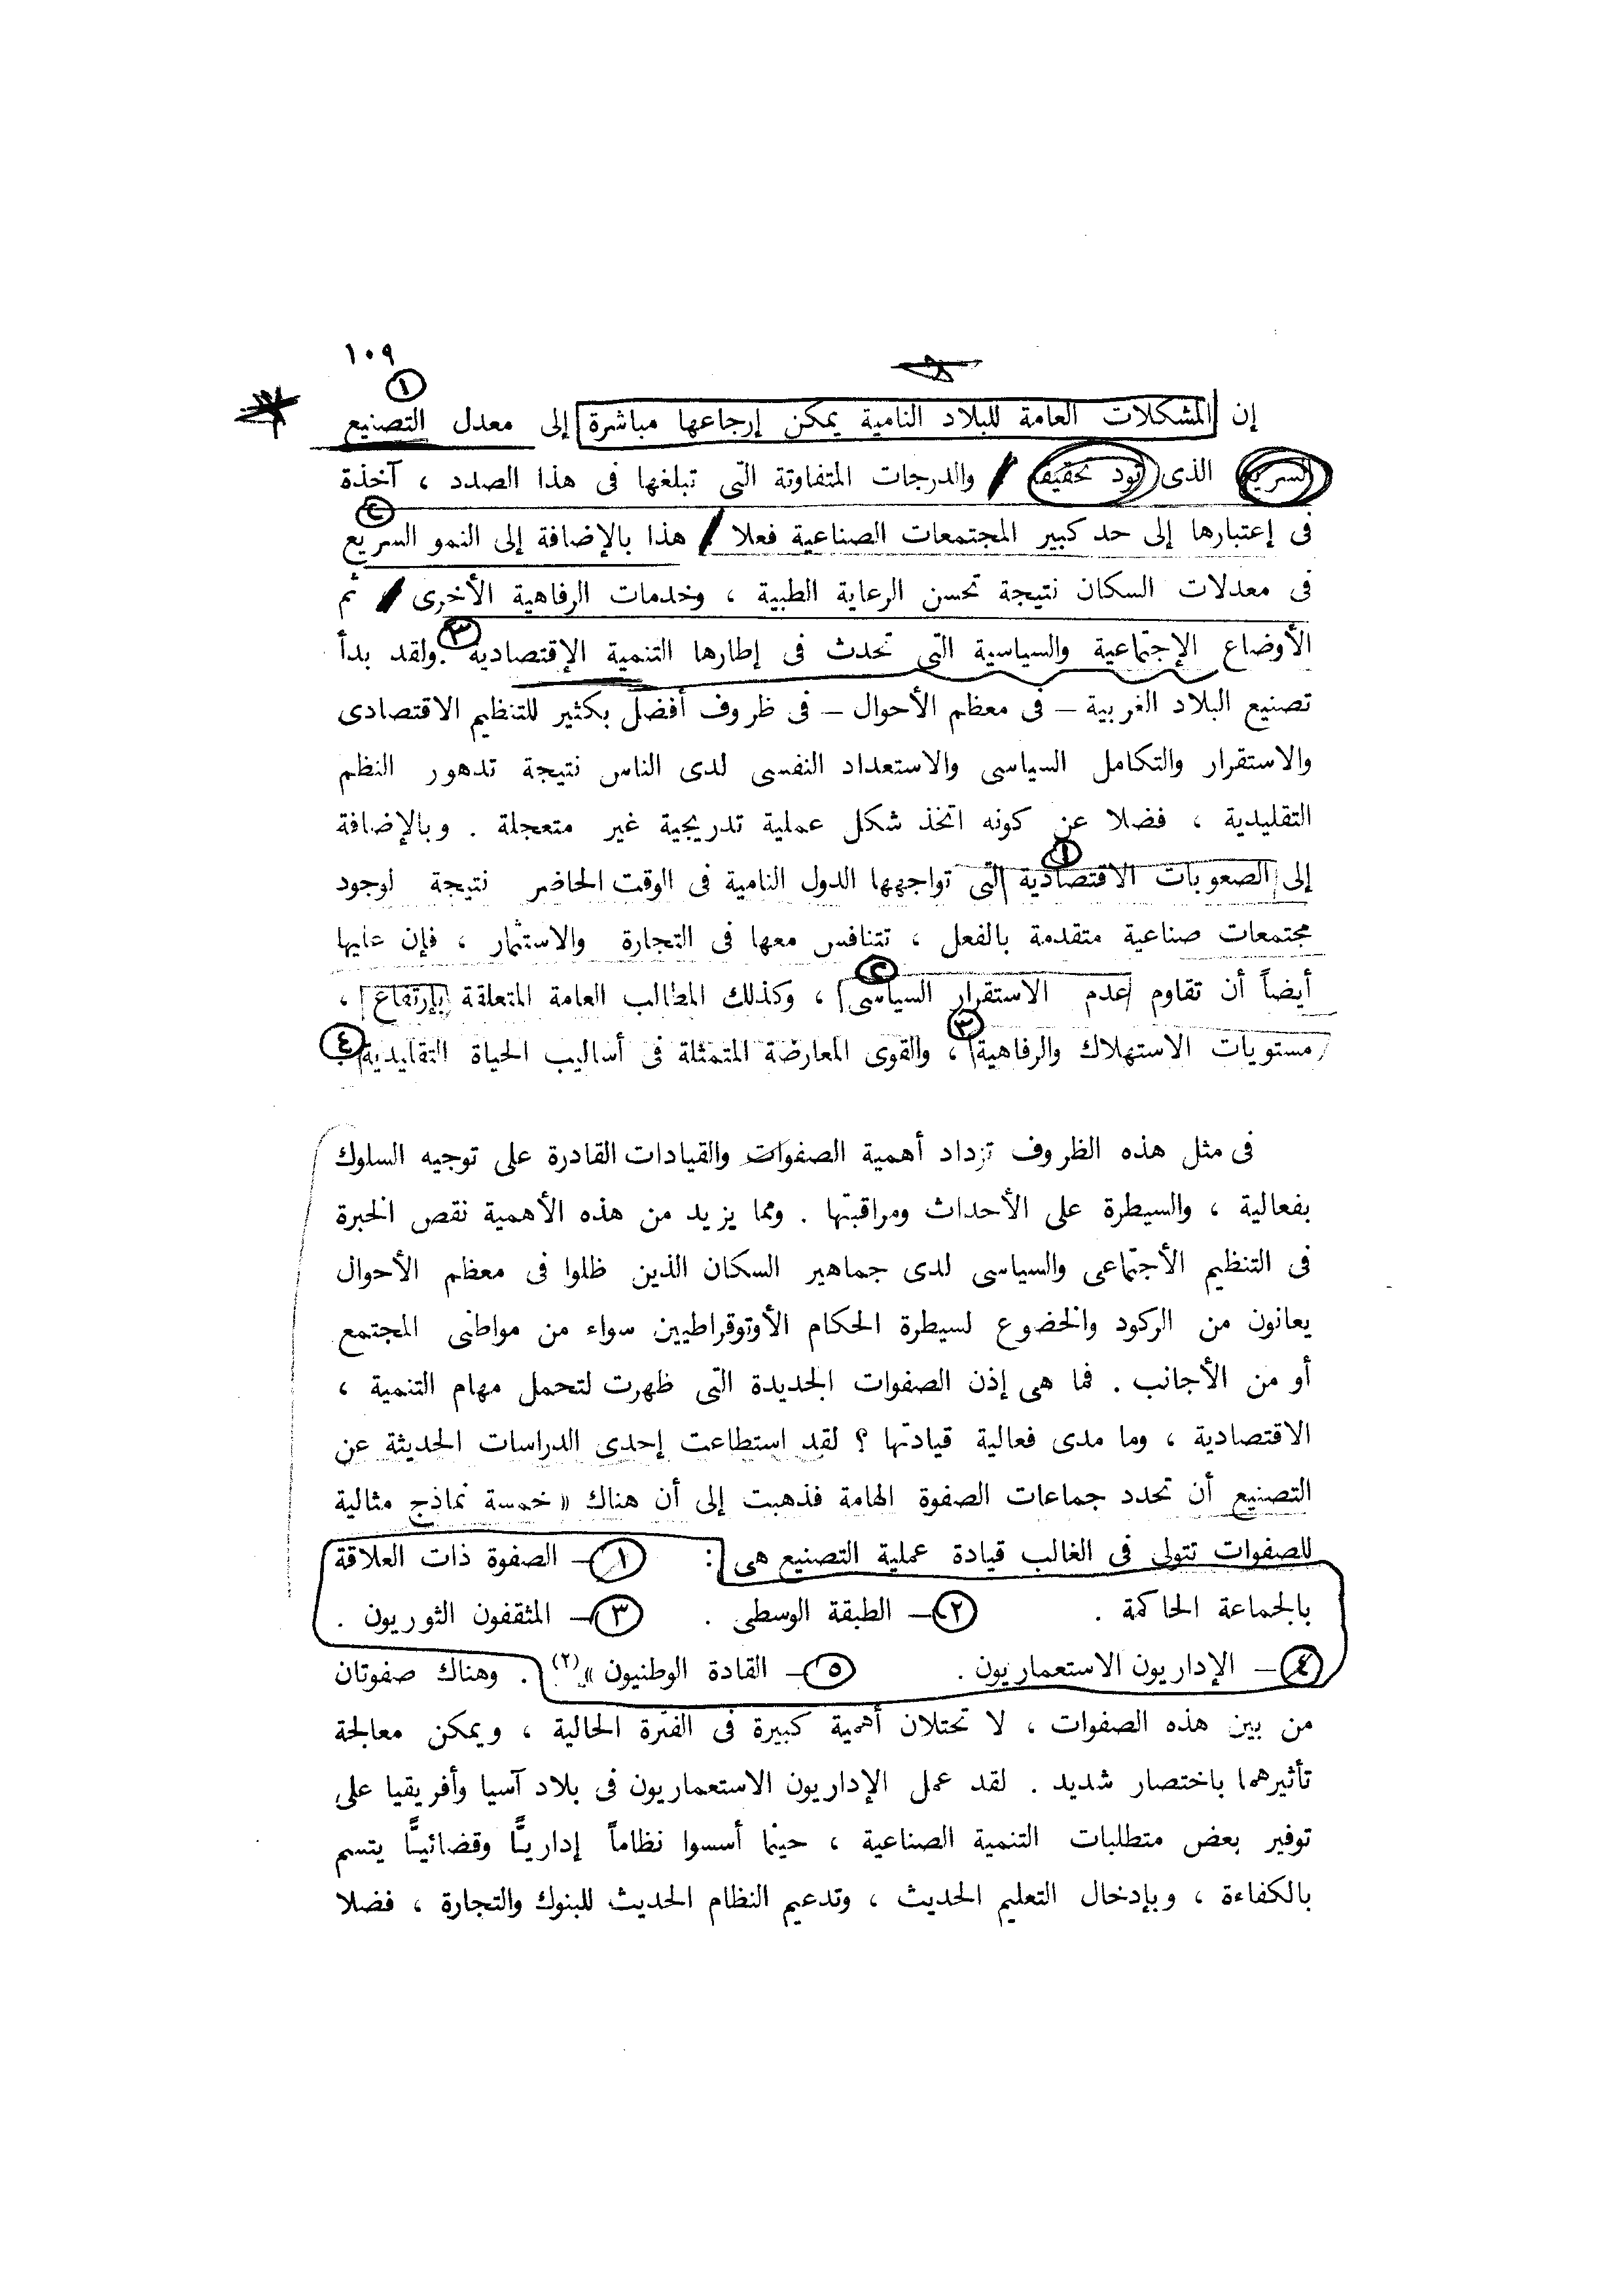 ١٠٩
١
إن المشكلات العامة للبلاد النامية يمكن إرجاعها مباشرة إلى معدل التصنيع
السريع الذى تود تحقيقه والدرجات المتفاوتة التى تبلغها فى هذا الصدد ، آخذة
٢
فى إعتبارها إلى حد كبير المجتمعات الصناعية فعلا / هذا بالإضافة إلى النمو السريع
فى معدلات السكان نتيجة تحسن الرعاية الطبية ، وخدمات الرفاهية الأخرى / ثم
الأوضاع الإجتماعية والسياسية التى تحدث فى إطارها التنمية الإقتصادية ٣ . ولقد بدأ
تصنيع البلاد الغربية – فى معظم الأحوال – فى ظروف أفضل بكثير للتنظيم الاقتصادى
والاستقرار والتكامل السياسى والاستعداد النفسى لدى الناس نتيجة تدهور النظم
التقليدية ، فضلا عن كونه اتخذ شكل عملية تدريجية غير متعجلة . وبالإضافة
١
إلى الصعوبات الاقتصادية التى تواجهها الدول النامية فى الوقت الحاضر نتيجة لوجود
مجتمعات صناعية متقدمة بالفعل ، تتنافس معها فى التجارة والاستثمار ، فإن عليها
٢
أيضاً أن تقاوم عدم الاستقرار السياسى ، وكذلك المطالب العامة المتعلقة بإرتفاع ،
٣
مستويات الاستهلاك والرفاهية ، والقوى المعارضة المتمثلة فى أساليب الحياة التقليدية ٤
فى مثل هذه الظروف تزداد أهمية الصفوات والقيادات القادرة على توجيه السلوك
بفعالية ، والسيطرة على الأحداث ومراقبتها . ومما يزيد من هذه الأهمية نقص الخبرة
فى التنظيم الأجتماعى والسياسى لدى جماهير السكان الذين ظلوا فى معظم الأحوال
يعانون من الركود والخضوع لسيطرة الحكام الأوتوقراطيين سواء من مواطنى المجتمع
أو من الأجانب . فما هى إذن الصفوات الجديدة التى ظهرت لتحمل مهام التنمية ،
الاقتصادية ، وما مدى فعالية قيادتها ؟ لقد استطاعت إحدى الدراسات الحديثة عن
التصنيع أن تحدد جماعات الصفوة الهامة فذهبت إلى أن هناك « خمسة نماذج مثالية
للصفوات تتولى فى الغالب قيادة عملية التصنيع هى : ١ – الصفوة ذات العلاقة
بالجماعة الحاكمة . ٢ – الطبقة الوسطى . ٣ – المثقفون الثوريون .
٤ – الإداريون الاستعماريون . ٥ – القادة الوطنيون »(٢) . وهناك صفوتان
من بين هذه الصفوات ، لا تحتلان أهمية كبيرة فى الفترة الحالية ، ويمكن معالجة
تأثيرهما باختصار شديد . لقد عمل الإداريون الاستعماريون فى بلاد آسيا وأفريقيا على
توفير بعض متطلبات التنمية الصناعية ، حينما أسسوا نظاماً إداريًّا وقضائيًّا يتسم
بالكفاءة ، وبإدخال التعليم الحديث ، وتدعيم النظام الحديث للبنوك والتجارة ، فضلا